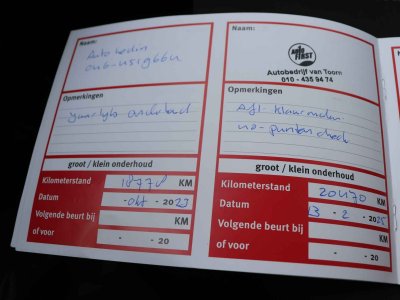 Naam:
Autobedrijf van Toorn
010 - 435 94 74
AUTO
FIRST
Naam:
Opmerkingen
Opmerkingen
jaarlijks onderhoud
groot / klein onderhoud
Kilometerstand 18778 KM
Datum - okt - 2023
Volgende beurt bij KM
of voor - - 20
Afl-klaarmaken
110-punten check
groot / klein onderhoud
Kilometerstand 20470 KM
Datum 13 - 2 - 2025
Volgende beurt bij KM
of voor - - 20